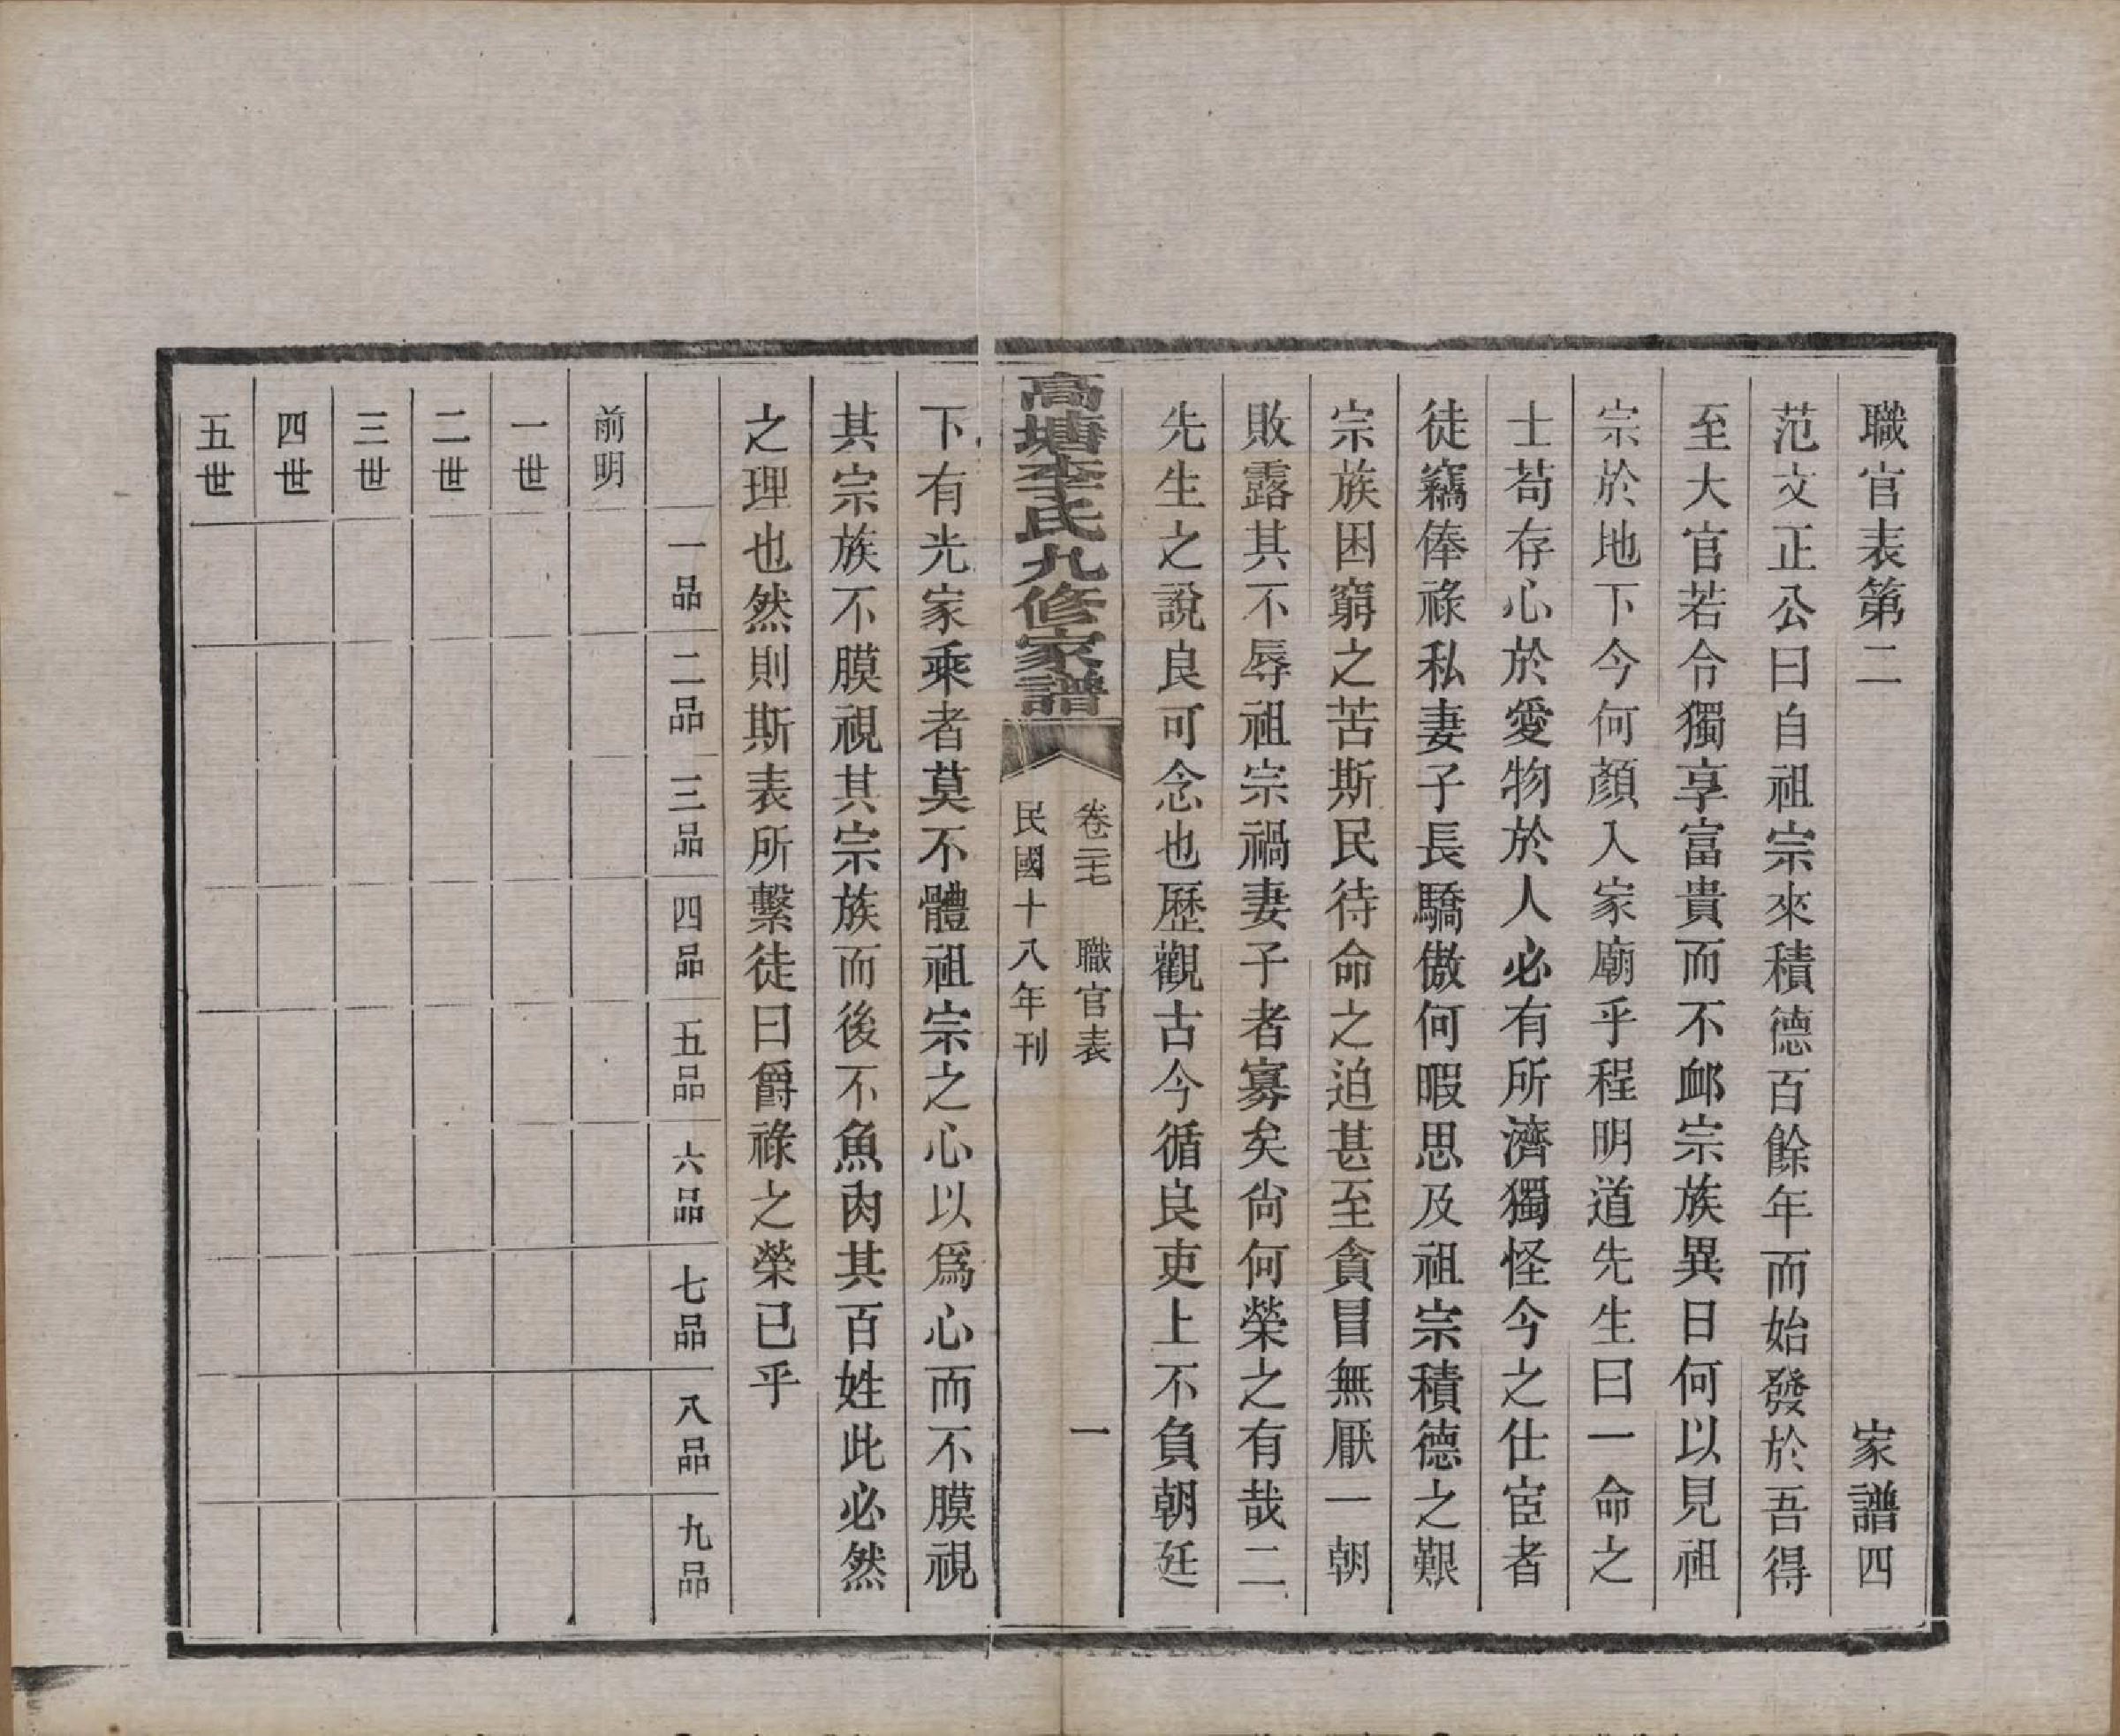 職官表第二 家譜四
范文正公曰自祖宗來積德百餘年而始發於吾得
至大官若令獨享富貴而不邺宗族異日何以見祖
宗於地下今何顏入家廟乎程明道先生曰一命之
士苟存心於愛物於人必有所濟獨怪今之仕宦者
徒竊俸祿私妻子長驕傲何暇思及祖宗積德之艱
宗族困窮之苦斯民待命之迫甚至貪冒無厭一朝
敗露其不辱祖宗禍妻子者寡矣尙何榮之有哉二
先生之說良可念也歷觀古今循良吏上不負朝廷
高塘李氏九修家譜
卷三七 職官表 一
民國十八年刊
下有光家乘者莫不體祖宗之心以爲心而不膜視
其宗族不膜視其宗族而後不魚肉其百姓此必然
之理也然則斯表所繫徒曰爵祿之榮已乎
一品 二品 三品 四品 五品 六品 七品 八品 九品
前明
一世
二世
三世
四世
五世